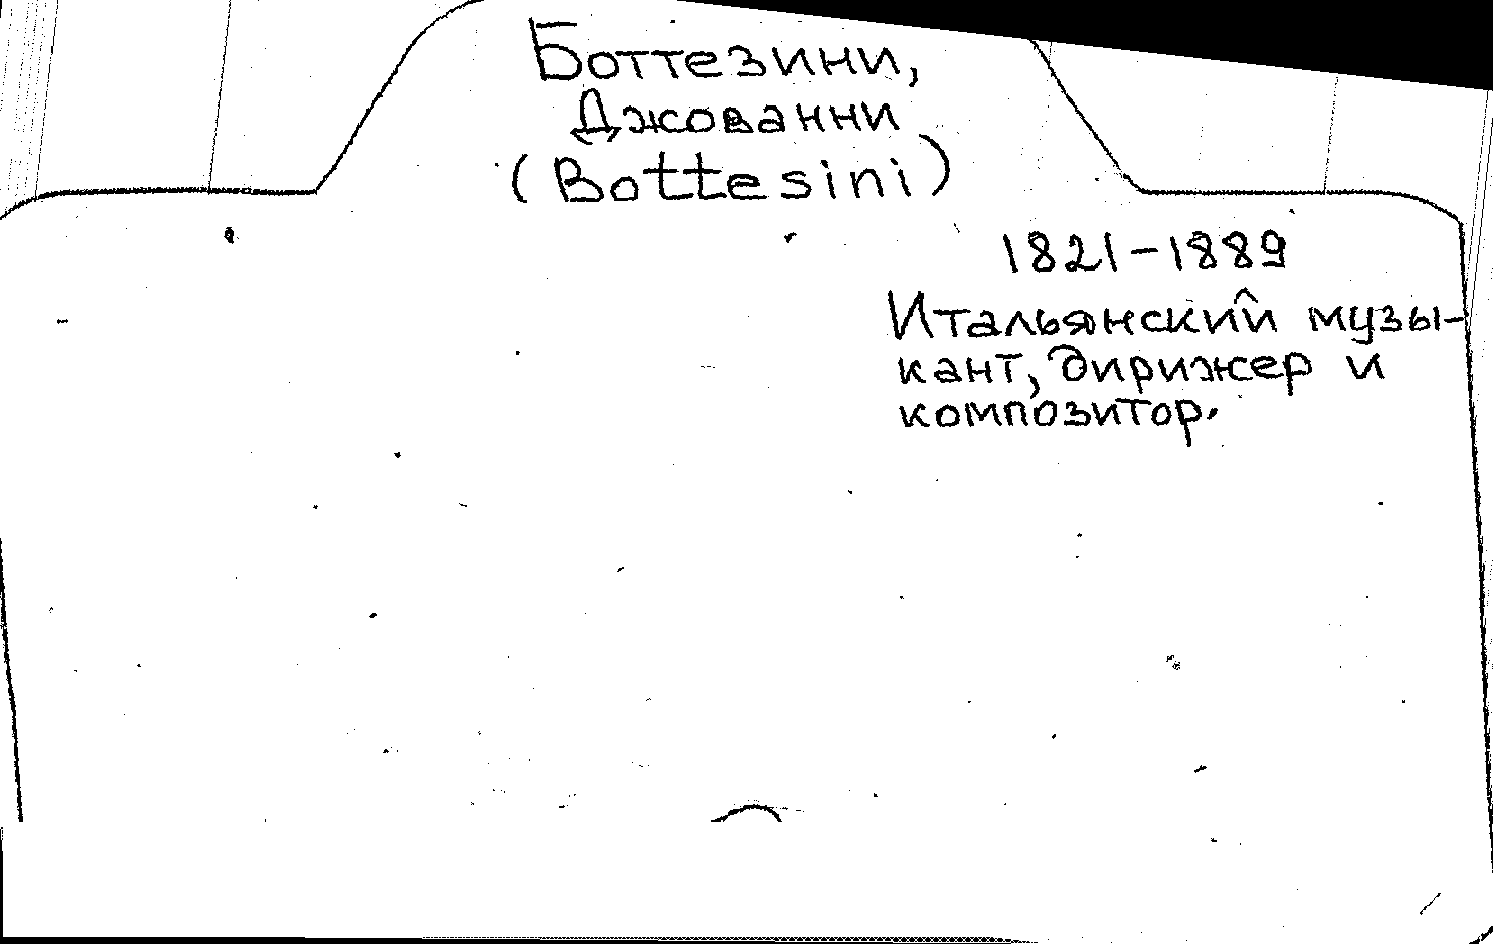 Боттезини,
Джованни
(Bottesini)
1821-1889
Итальянский музы-
кант, дирижер и
композитор.